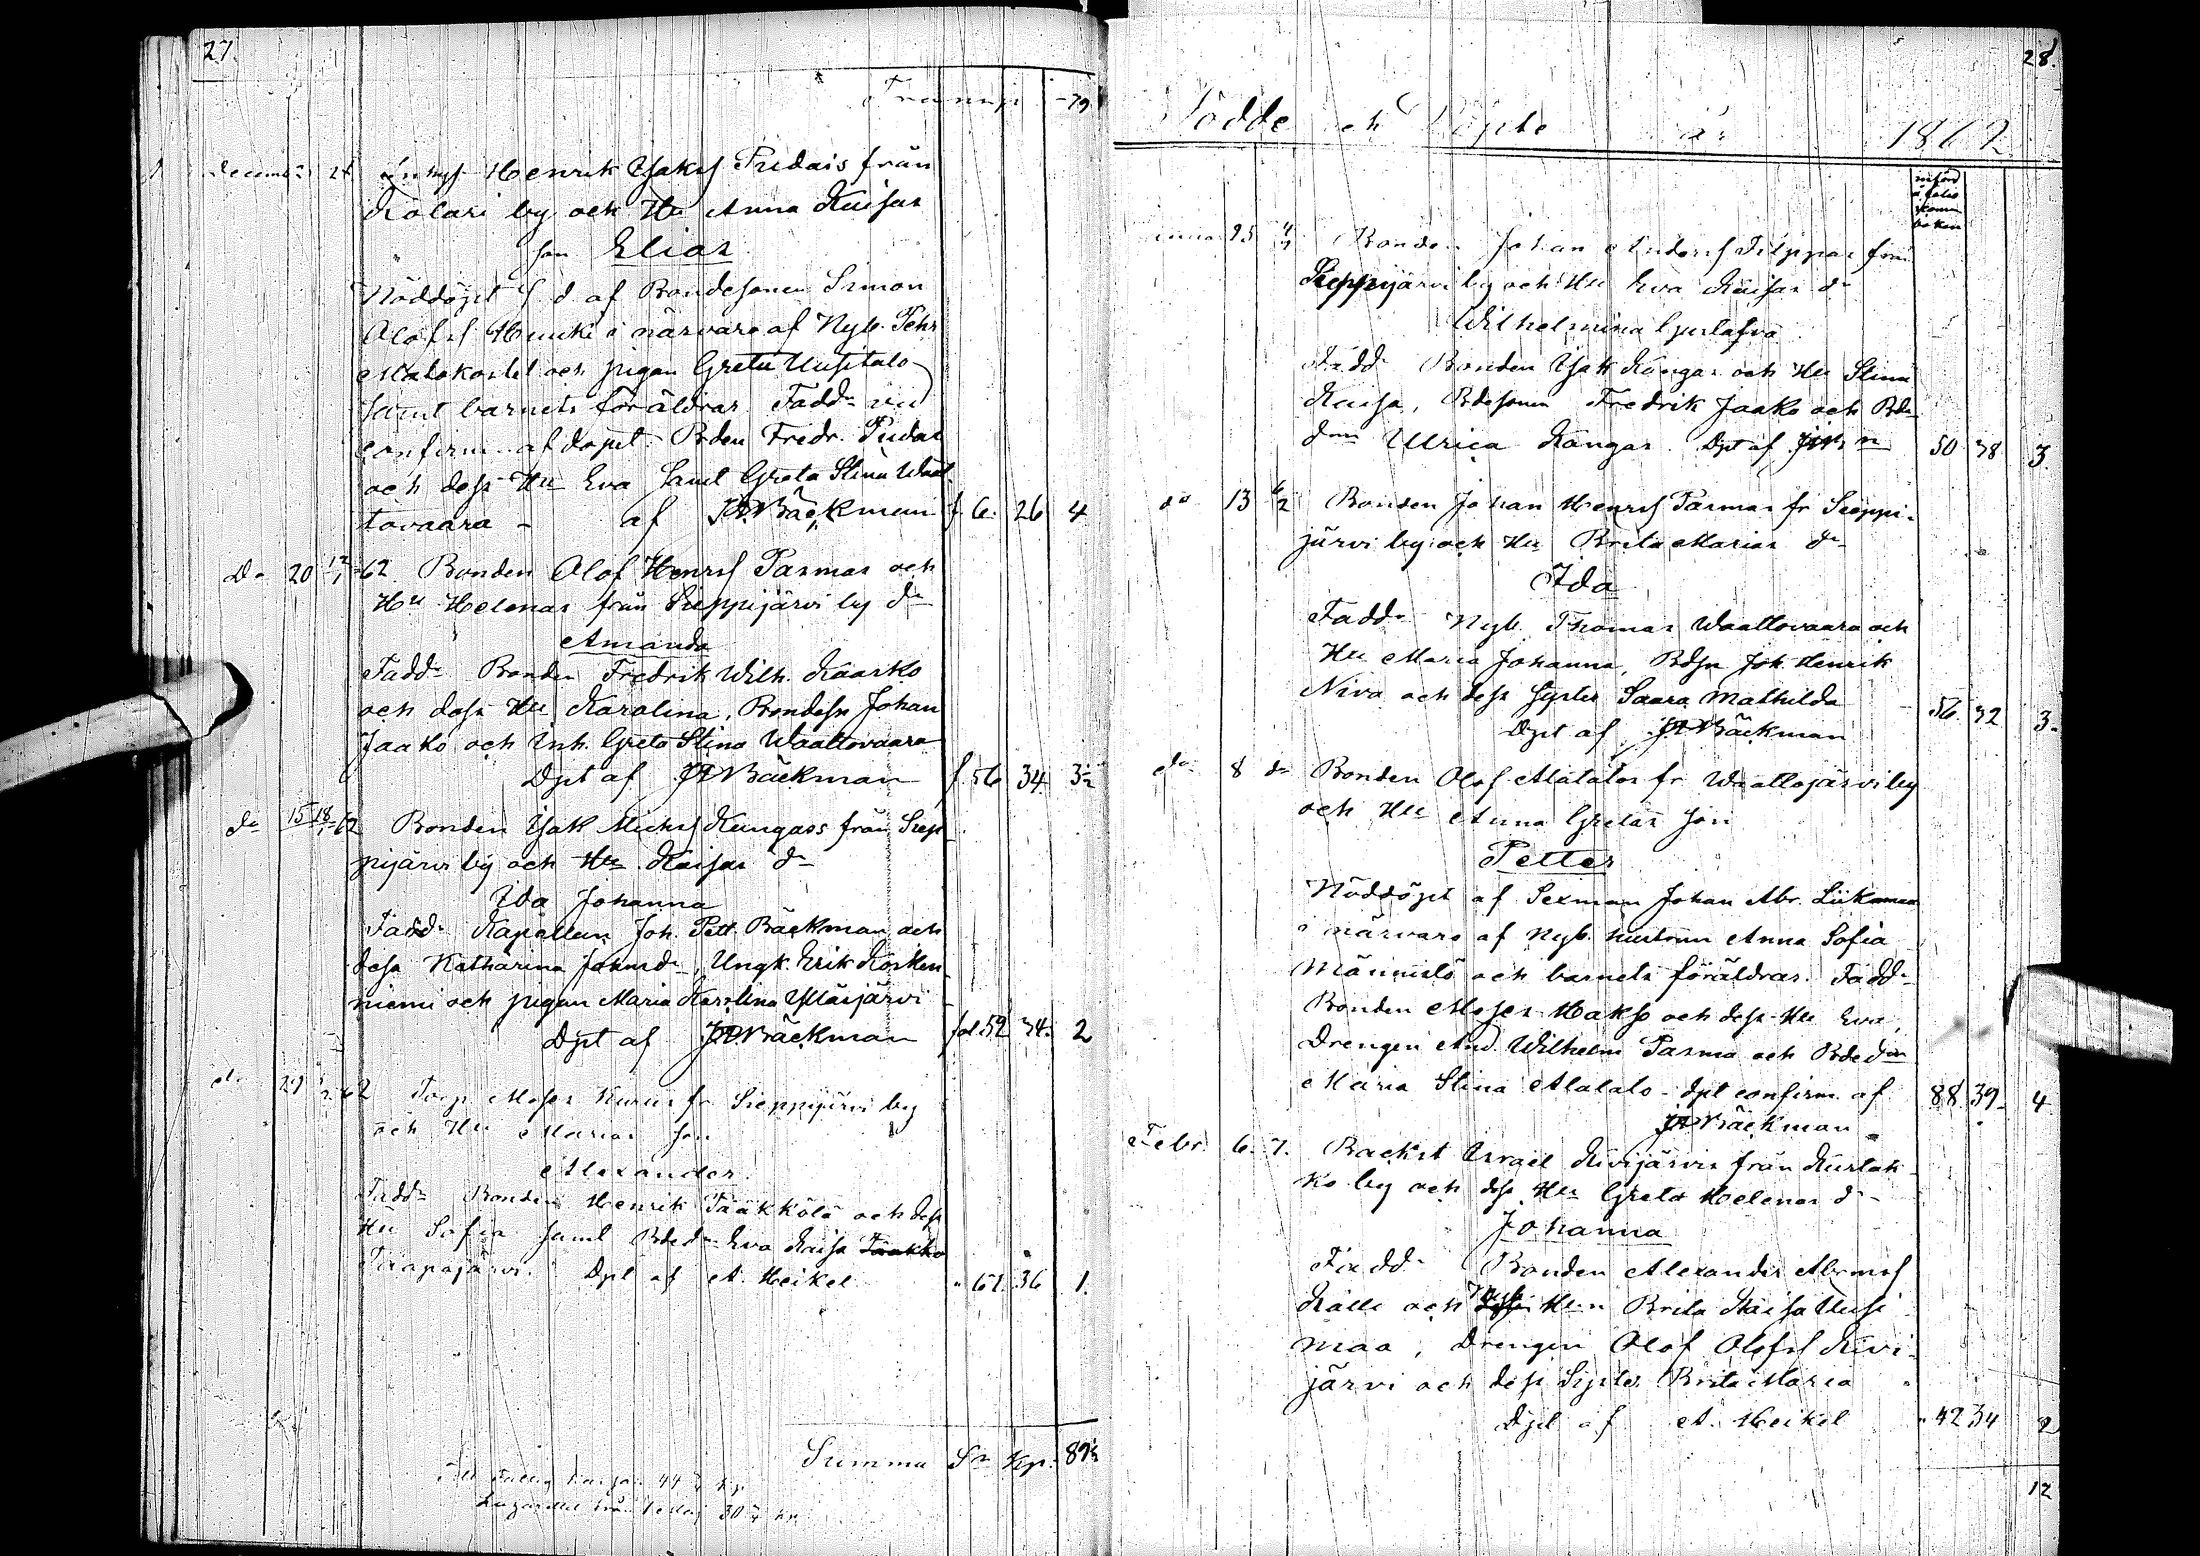 27.
Transp. 79
December 2
Henrik Isaks Pudais från
Kolari by och Hu Anna Kaisas
son Elias
Nöddöpt s. d. af Bondesonen Simon
Olofss Hunki i närvaro af Nyb. Pehr
Matokortet och pigan Greta Uusitalo
samt barnets föräldrar. Fadd. vid
confirm. af dopet. Bden Fredr. Pudas
och dess Hu Eva samt Greta Stina Waal-
tovaara - af JP Bäckman f. 6. 26 4
Do 20 12/1 62. Bonden Olof Henrs Parmas och
Hu Helenas från Sieppijärvi by dr
Amanda
Fadd. Bonden Fredrik Wilh. Kaarko
och dess Hu Karolina, Bondesn Johan
Jaako och Inh. Greta Stina Waaltovaara
Dpt af JP Bäckman f. 56 34 3½
do 15 18/1 62 Bonden Isak Michs Kungass från Siep-
pijärvi by och Hu Kaisas dr
Ida Johanna
Fadd. Kapellan Joh. Pett. Bäckman och
dess Katharina Johansdr, Ungk. Erik Kosken-
niemi och pigan Maria Karolina Ylläsjärvi
Dpt af JP Bäckman fol. 52 34. 2
do 29 62 Torp. Moses Kurus fr Sieppijärvi by
och Hu Marias son
Alexander
Fadd. Bonden Henrik Tääkkölä och dess
Hu Sofia samt Bdedr Eva Kaisa Taakko
Taapajärvi. Dpt af A. Heikel " 67. 36 1.
Summa Sr Kp. 89½
28.
Födde och Döpte år 1862
införd
å folio
komm
boken
25 Bonden Johan Anderss Filppas från
Sieppijärvi by och Hu Eva Kaisas dr
Wilhelmina Gustafva
Fadd. Bonden Isak Kangas och Hu Stina
Kaisa, Bdesonen Fredrik Jaako och Bde-
dren Ulrica Kangas. Dpt af 50 38 3.
do 13 6/2 Bonden Johan Henrs Parmas fr Sieppi-
järvi by och Hu Brita Marias dr
Ida
Fadd. Nyb. Thomas Waaltovaara och
Hu Maria Johanna, Bdsn Joh. Henrik
Niva och dess syster Saara Mathilda
Dpt af JP Bäckman 56. 32 3.
do 8 do Bonden Olof Alatalos fr Waaltojärvi by
och Hu Anna Gretas son
Petter
Nöddöpt af Sexman Johan Abr. Liikamaa
i närvaro af Nyb. hustrun Anna Sofia
Männistö och barnets föräldrar. Fadd.
Bonden Moses Hakso och dess Hu Eva,
Drengen And. Wilhelm Parma och Bdedrn
Maria Stina Alatalo. dpt confirm. af 88. 39. 4
JP Bäckman
Febr. 6. 7. Backst Israel Kivijärvis från Kurtak-
ko by och dess Hu Greta Helenas dr
Johanna
Fadd. Bonden Alexander Abrams
Kalli och Nyb. Hun Brita Kaisa Uusi-
maa, Drengen Olof Olofss Kivi-
järvi och dess Syster Brita Maria
Dpt af A. Heikel " 42 34 2
12